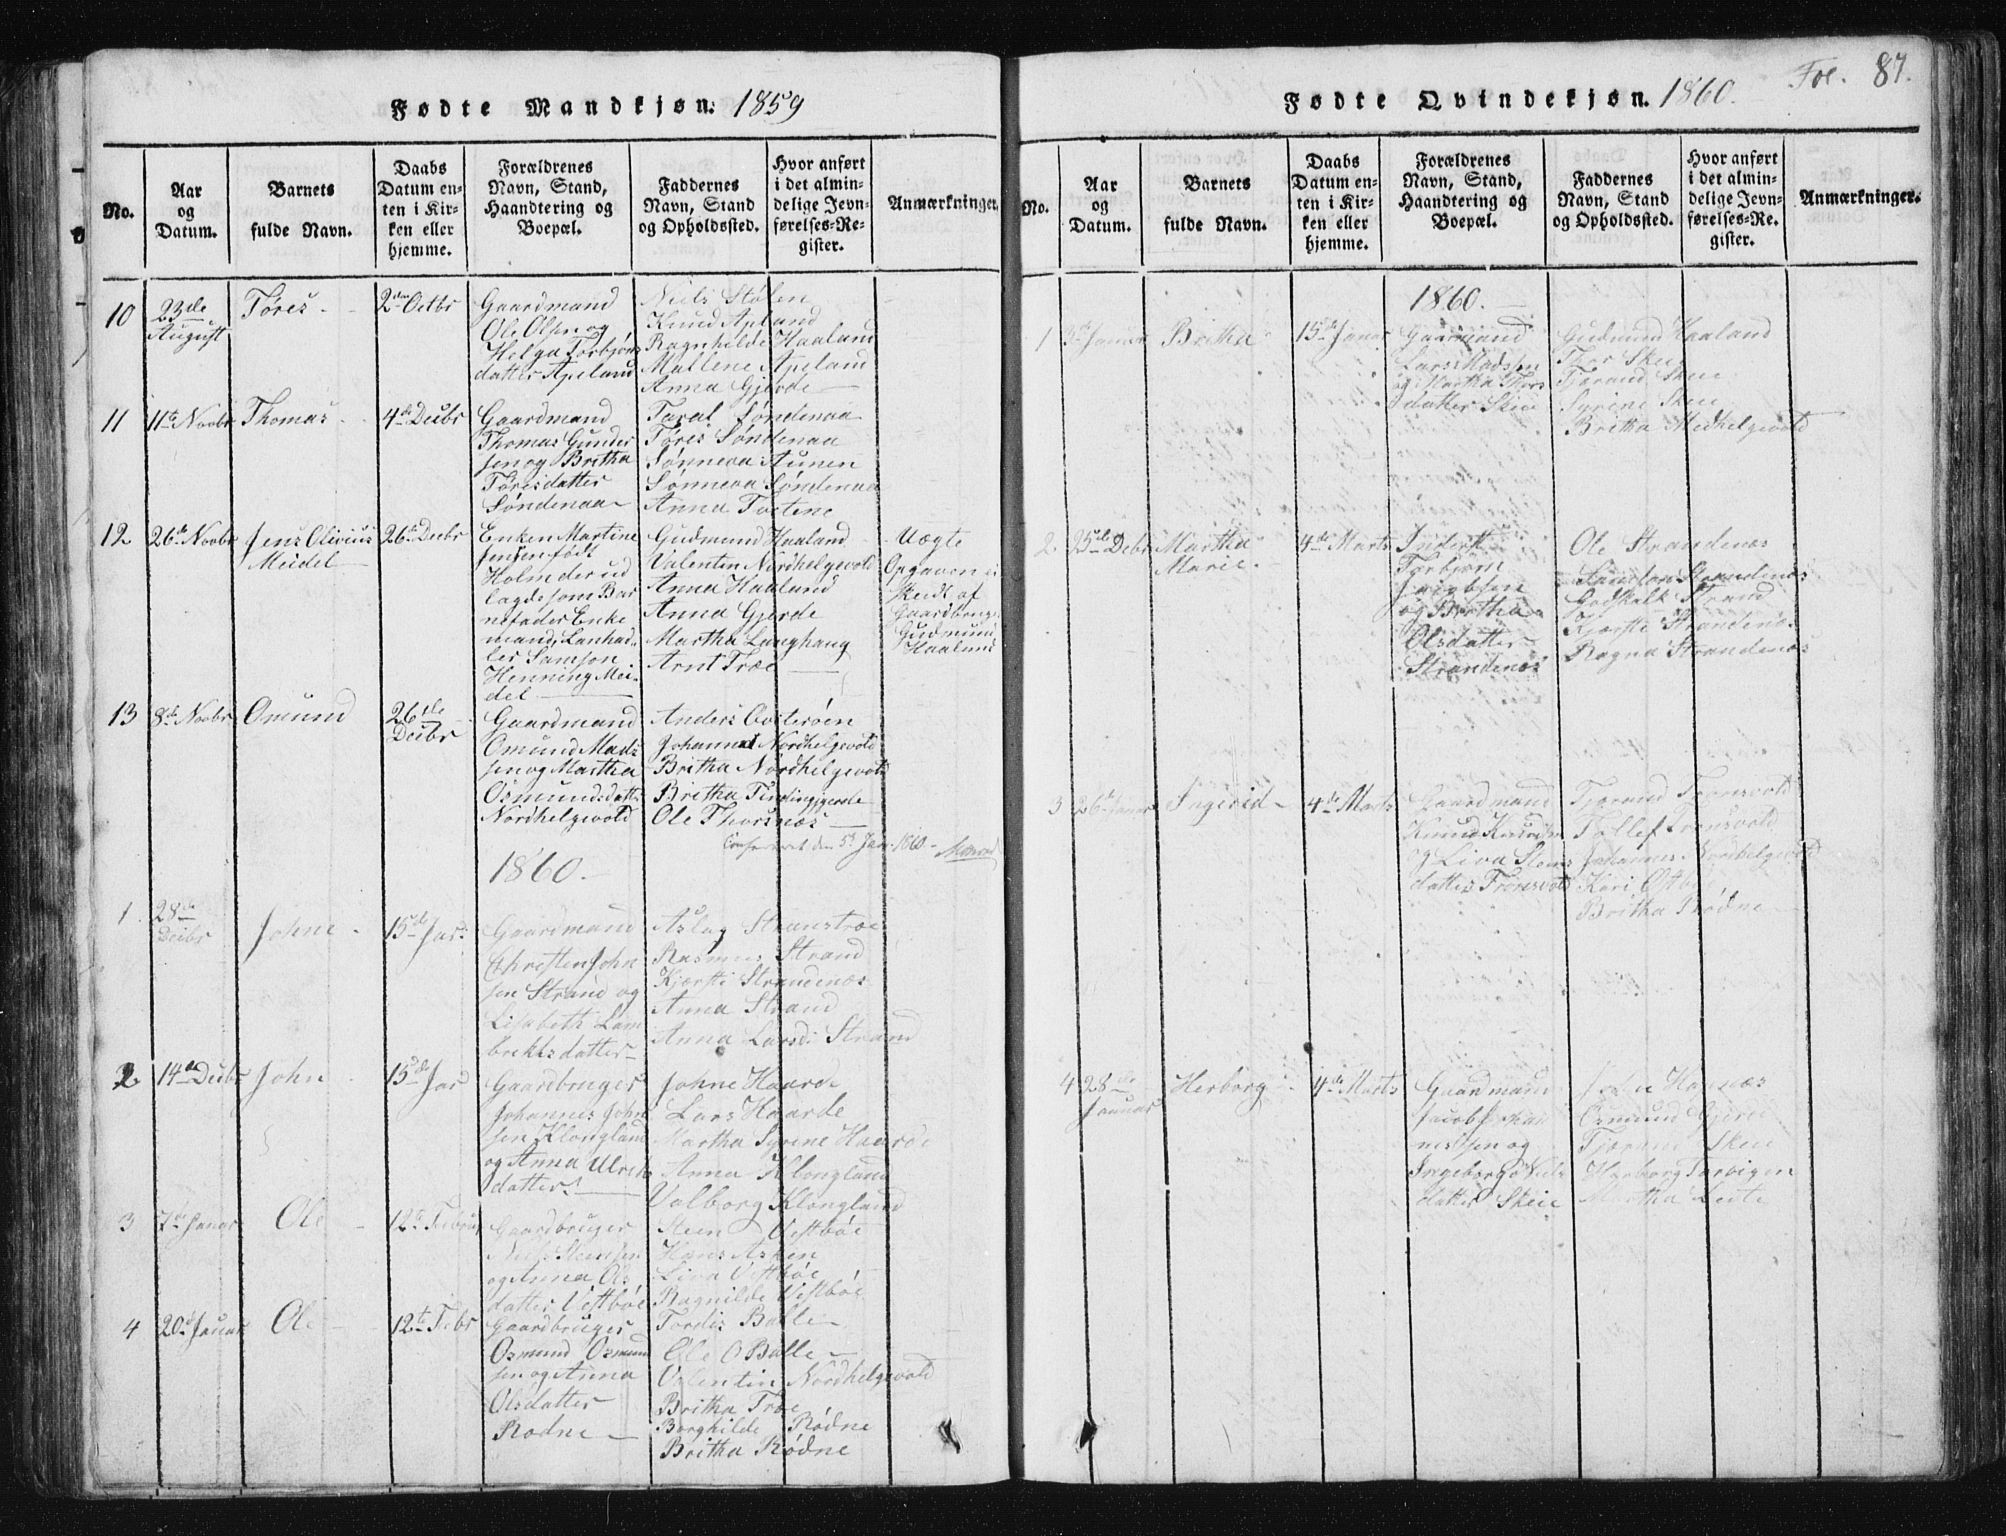 Fødte Mandkjøn. 1859
No.
Aar og Datum.
Barnets fulde Navn.
Daabs Datum enten i Kirken eller hjemme.
Forældrenes Navn, Stand, Haandtering og Boepæl.
Faddernes Navn, Stand og Opholdssted.
Hvor anført i det almindelige Jevnførelses-Register.
Anmærkninger.
10
23de
August
Føres
2den Octbr
Gaardmand
Ole Olsen og
Helga Torbjørns
datter Apeland
Niels Stølen
Knud Apland
Ragnhilde Haaland
Mallene Apeland
Anna Gjerde
11
11te Novbr
Thomas
4de Decbr
Gaardmand
Thomas Gunder
sen og Britha
Tøresdatter
Søndenaa
Taral Søndenaa
Tøres Søndenaa
Sønneva Aunen
Sønneva Søndenaa
Anna Tveitene
12
26de Novbr
Jens Olivius
Meidel
26de Decbr
Enken Martine
Jensen født
Holm der ud
lagde som Bar
nefader Enke
mand, Lanhad
ler Samson
Henning Mei
del
Gudmund Haaland
Valentin Nordhelgevold
Anna Haaland
Anna Gjerde
Martha Langhaug
Arnt Træ
Uægte
Opgaven er
skedt af
Gaardbrug.
Gudmund
Haaland
13
8de Novbr
Omund
26de
Decbr
Gaardmand
Omund Mads
sen og Martha
Osmundsdatter
Nordhelgevold
Anders Ovsterøen
Johannes Nordhelgevold
Britha Nordhelgevold
Britha Tindingjerde
Ole Thorsnæs
Confereret den 5te Janr. 1860
1860.
1.
28de
Decbr
Johne
15de Jan
Gaardmand
Christen John
sen Strand og
Lisabeth Lam
brektsdatter
Aslag Stranstræ
Rasmus Strand
Kjersti Strandenæs
Anna Strand
Anna Larsd: Strand
2
14de Decbr
John
15de Jan
Gaardbruger
Johannes John
sen Klongland
og Anna Ulriks
datter
Johne Haarde
Lars Haarde
Martha Syrine Haarde
Anna Klongland
Valborg Klongland
3
7de Januar
Ole
12te Februar
Gaardbruger
Niels Steensen
og Anna Ols
datter Vestbøe
Steen Vestbøe
Hans Asken
Liva Vestbøe
Ragnilde Vestbøe
4
20de Januar
Ole
12te Febr
Gaardbruger
Osmund Osmund
sen og Anna
Olsdatter
Rødne
Tordis Balle
Ole O Balle
Valentin Nordhelgevold
Britha Træ
Borghilde Rødne
Britha Rødne
Fol. 87.
Fødte Qvindekjøn. 1860.
No.
Aar og Datum.
Barnets fulde Navn.
Daabs Datum enten i Kirken eller hjemme.
Forældrenes Navn, Stand, Haandtering og Boepæl.
Faddernes Navn, Stand og Opholdssted.
Hvor anført i det almindelige Jevnførelses-Register.
Anmærkninger.
1860.
1
3de Januar
Britha
15de Januar
Gaarmand
Lars Madssen
og Martha Thors
datter Skeie
Gudmund Haaland
Thor Skeie
Tjerand Skeie
Syrine Skeie
Britha Medhelgevold
2
25de Debr
Martha
Marie
4de Marts
Inderst
Torbjørn
Jacobsen
og Bertha
Olsdatter
Strandenæs
Ole Strandenæs
Samson Strandenæs
Godskalk Strand
Kjersti Strandenæs
Ragna Strandenæs
3
26de Januar
Ingerid
4de Marts
Gaardmand
Knud Knudsen
og Liva Steins
datter Trønsvold
Tjerand Trønsvold
Tollef Trønsvold
Johannes Nordhelgevold
Kari Østbø
Britha Rødne
4
28de
Januar
Herborg
4de Marts
Gaardmand
Jacob Johan
nessen og
Ingeborg Niels
datter Skeie
Osmund Gjerde
Tjerand Skeie
Herborg Tarvigen
Martha Leite